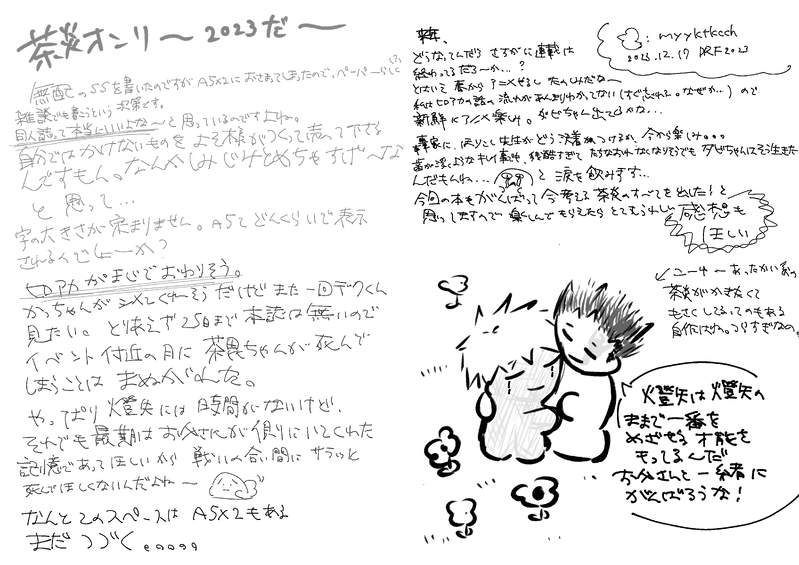 茶炎オンリー〜2023だ〜
無配のSSを書いたのですがA5×2におさまってしまったので、ペーパーらしく
雑談でも書こうという次第です。
同人誌って本当にいいよな〜と思っているのですよね。
自分ではかけないものをよそ様がつくって売って下さる
んですもん。なんかしみじみとめちゃすげ〜な
と思って…
字の大きさが定まりません。A5てどんくらいで表示
されるんでしょーか？
ヒロアカがまじでおわりそう。
かっちゃんが してくれそうだけどまた一回デクくん
見たい。とりあえず25日まで本誌は無いので
イベント付近の月に茶毘ちゃんが死んで
しまうことは まぬがれた。
やっぱり燈矢には時間がないけど、
それでも最期はお父さんが側にいてくれた
記憶であってほしいから戦いの合い間にサラッと
死んでほしくないんだよね〜
なんとこのスペースは A5×2もある
まだつづく。
: myyktkcch
2023.12.17 DRF2023
来年、
どうなってんだろ さすがに連載は
終わってるだろーか…？
とはいえ春からアニメやるし たのしみだな〜
私はヒロアカの話の流れがあんまりわかってない(すぐ忘れる。なぜか…)ので
新鮮にアニメ楽しみ。 ちゃん出てるかな…
轟家に、 先生がどう決着がつけるか、今から楽しみ。。。
歯が浮くようなキレイ事も、残酷すぎて たちなおれなくなりそうでも ちゃんはそう生きた
んだもんね… と涙を飲みます…
今回の本もがんばって今考える茶炎のすべてを出した！と
思ってますので楽しんでもらえたらとてもうれしい
感想も
ほしい
茶炎がかきたくて
もさくしてるってのもある
自作ばね。つらすぎなの。
燈矢は燈矢の
ままで一番を
めざせる才能を
もってる〜だ
お父さんと一緒に
がんばろうな！